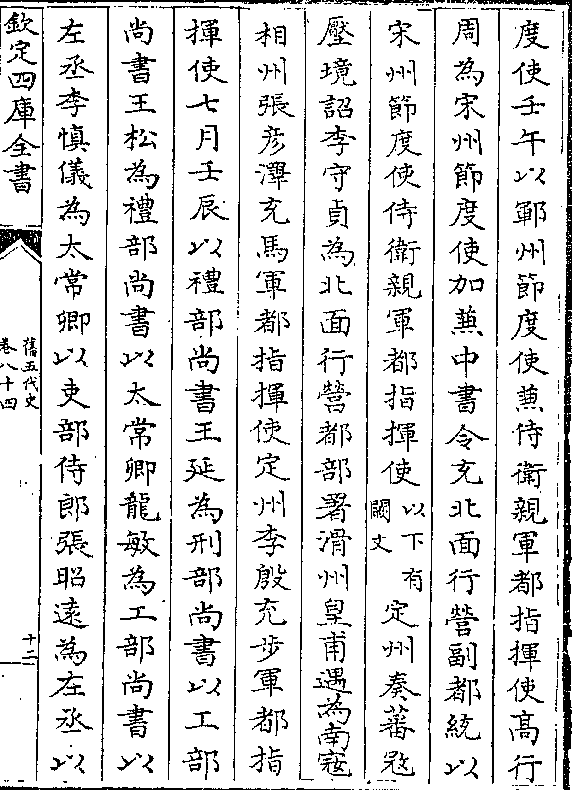 度使壬午以鄆州節度使兼侍衛親軍都指揮使髙行
周為宋州節度使加兼中書令充北面行營副都統以
宋州節度使侍衛親軍都指揮使
以下有
闕文
定州奏蕃寇
壓境詔李守貞為北面行營都部署滑州皇甫遇為南寇
相州張彦澤充馬軍都指揮使定州李殷充步軍都指
揮使七月壬辰以禮部尚書王延為刑部尚書以工部
尚書王松為禮部尚書以太常卿龍敏為工部尚書以
左丞李慎儀為太常卿以吏部侍郎張昭遠為左丞以
欽定四庫全書
舊五代史
卷八十四
十二